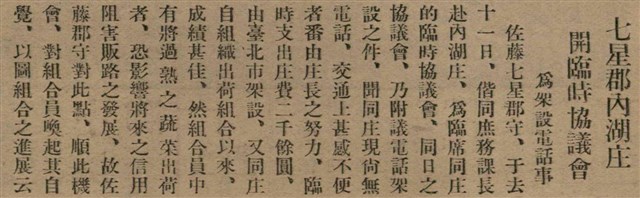 七星郡內湖庄
開臨時協議會
爲架設電話事
佐藤七星郡守、于去
十一日、偕同庶務課長
赴內湖庄、爲臨席同庄
的臨時協議會、同日之
協議會、乃附議電話架
設之件、聞同庄現尙無
電話、交通上甚感不便
者番由庄長之努力、臨
時支出庄費二千餘圓、
由臺北市架設、又同庄
自組織出荷組合以來、
成績甚佳、然組合員中
有將過熟之蔬菜出荷
者、恐影響將來之信用
阻害販路之發展、故佐
藤郡守對此點、順此機
會、對組合員喚起其自
覺、以圖組合之進展云